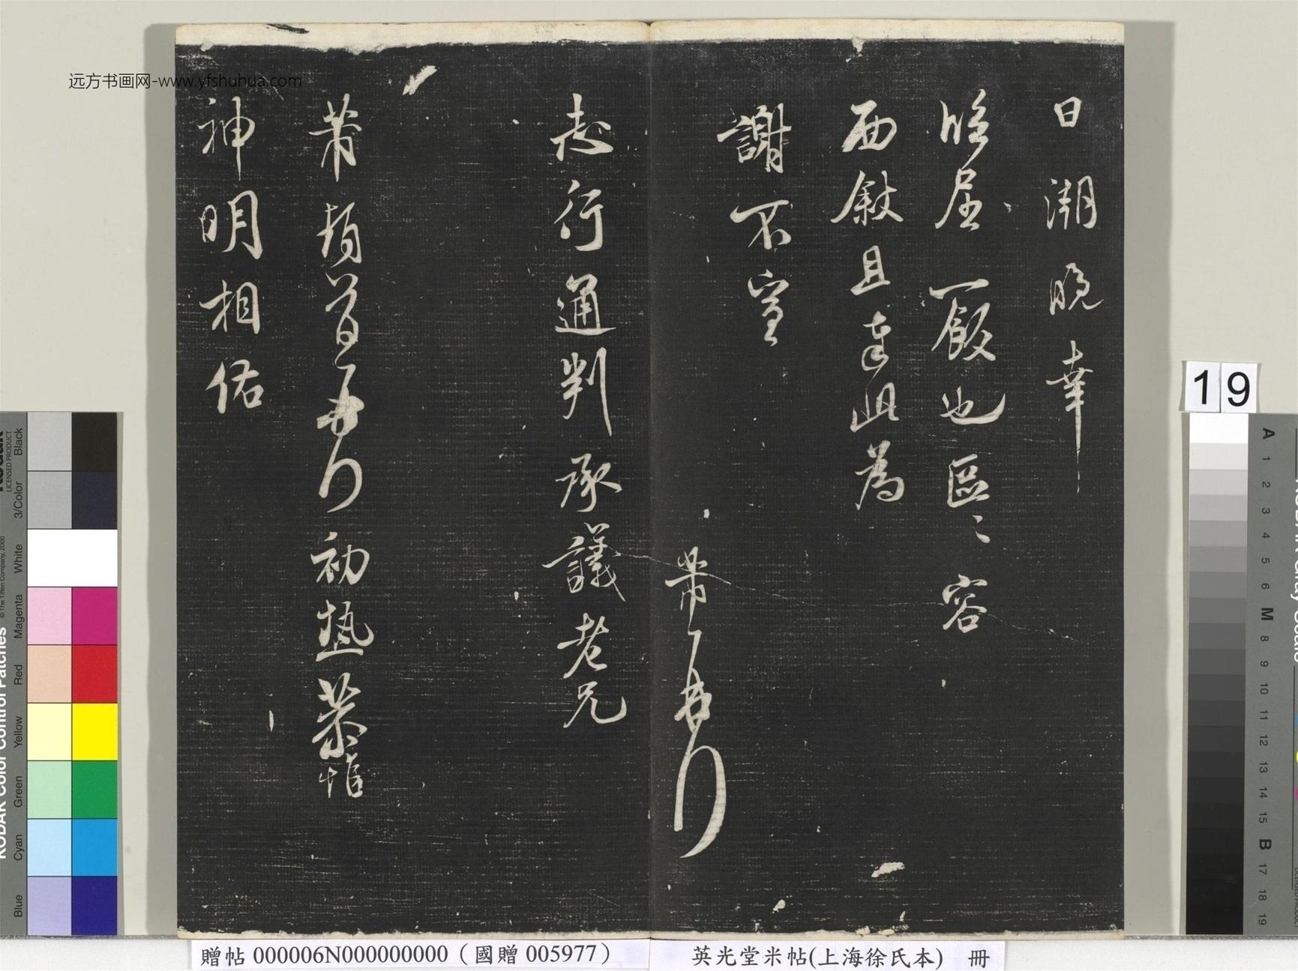 日潮晚幸
临屈一飯也區〻容
面敘且奉此為
謝不宣
芾頓首
志行通判承議老兄
芾頓首再拜初熱恭惟
神明相佑
远方书画网-www.yfshuhua.com
19
贈帖 000006N000000000（國贈 005977）
英光堂米帖(上海徐氏本) 冊
KODAK Color Control Patches
Blue
Cyan
Green
Yellow
Red
Magenta
White
3/Color
Black
A
1
2
3
4
5
6
M
8
9
10
11
12
13
14
15
B
17
18
19